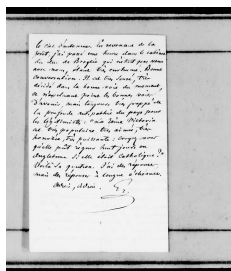 le ciel d'automne. En revenant de la
forêt, j'ai passé une heure dans le cabinet
du duc de Broglie qui n'était pas venu
avec moi, étant très enrhumé. Bonne
conversation. Il est très sensé, très
décidé dans la bonne voie du moment,
et n'excluant point les bonnes voies
d'avenir, mais toujours très frappé de
la profonde antipathie du pays pour
les légitimistes : « la Reine Victoria
est très populaire, très aimée, très
honorée, très puissante ; croyez-vous
qu'elle pût régner huit jours en
Angleterre si elle était catholique ? »
Voilà la question. J'ai des réponses,
mais des réponses à longue échéance.
Adieu, adieu.